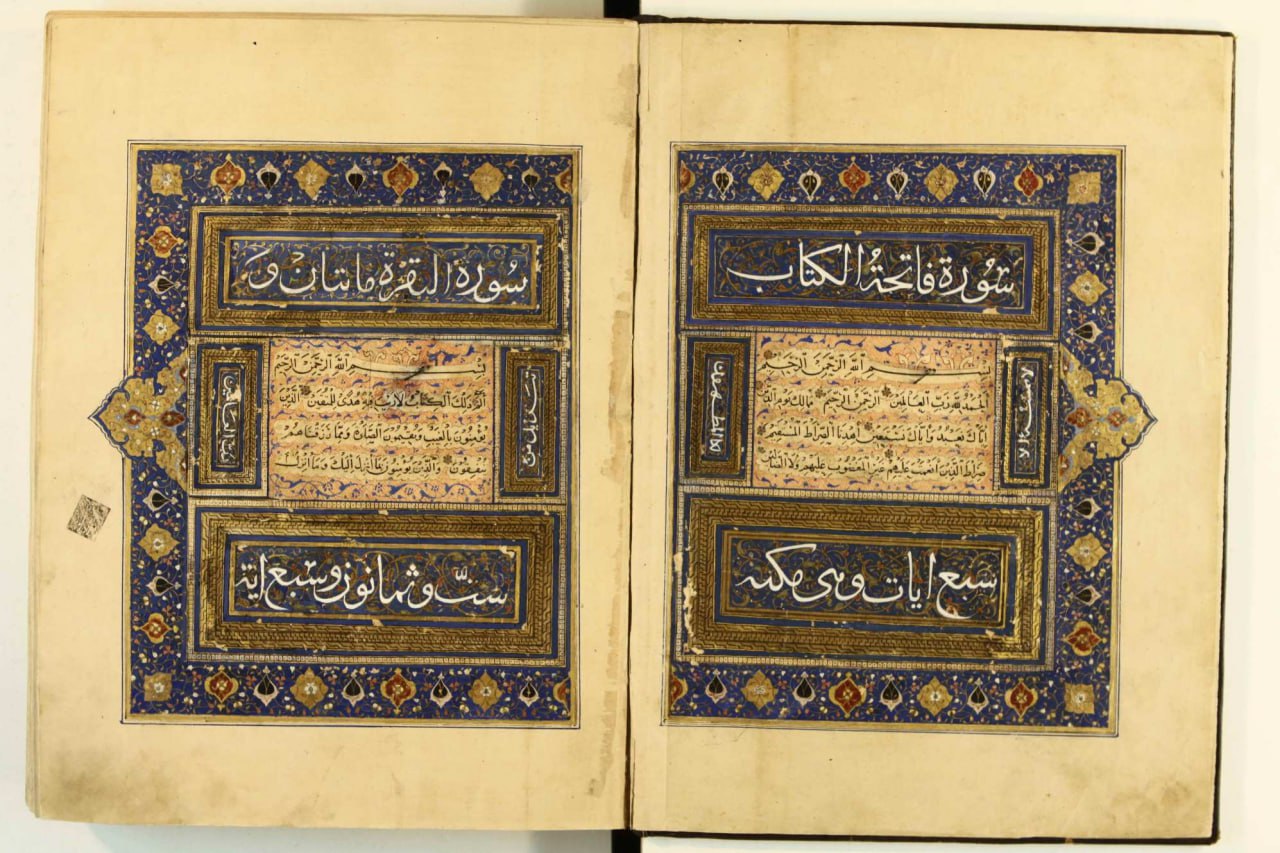 سورة فاتحة الكتاب
بسم الله الرحمن الرحيم
الحمد لله رب العالمين الرحمن الرحيم مالك يوم الدين
اياك نعبد واياك نستعين اهدنا الصراط المستقيم
صراط الذين انعمت عليهم غير المغضوب عليهم ولا الضالين
سبع ايات وهى مكية
سورة البقرة مائتان و
بسم الله الرحمن الرحيم
الم ذلك الكتاب لا ريب فيه هدى للمتقين الذين
يؤمنون بالغيب ويقيمون الصلوة ومما رزقناهم
ينفقون والذين يؤمنون بما انزل اليك وما انزل
ست وثمانون وسبع اية